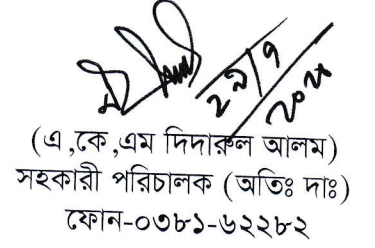 ২৯/৭
২০২৪
(এ,কে,এম দিদারুল আলম)
সহকারী পরিচালক (অতিঃ দাঃ)
ফোন-০৩৮১-৬২২৮২